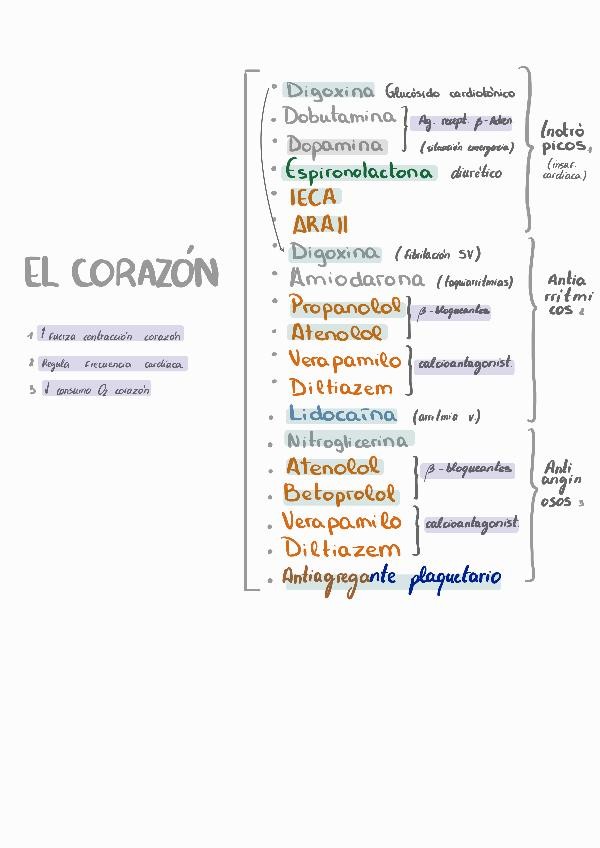 EL CORAZÓN
1 ↑ Fuerza contracción corazón
2 Regula frecuencia cardiaca
3 ↓ consumo O2 corazón
• Digoxina Glucósido cardiotónico
• Dobutamina
• Dopamina
Ag. recept. β-Aden
(situación emergencia)
• Espironolactona diurético
• IECA
• ARA II
Inotró
picos 1
(insuf.
cardiaca)
• Digoxina (fibrilación SV)
• Amiodarona (taquiarritmias)
• Propanolol
• Atenolol
β-bloqueantes
• Verapamilo
• Diltiazem
calcioantagonist.
• Lidocaína (arritmia v.)
Antia
rrítmi
cos 2
• Nitroglicerina
• Atenolol
• Betoprolol
β-bloqueantes
• Verapamilo
• Diltiazem
calcioantagonist.
• Antiagregante plaquetario
Anti
angin
osos 3